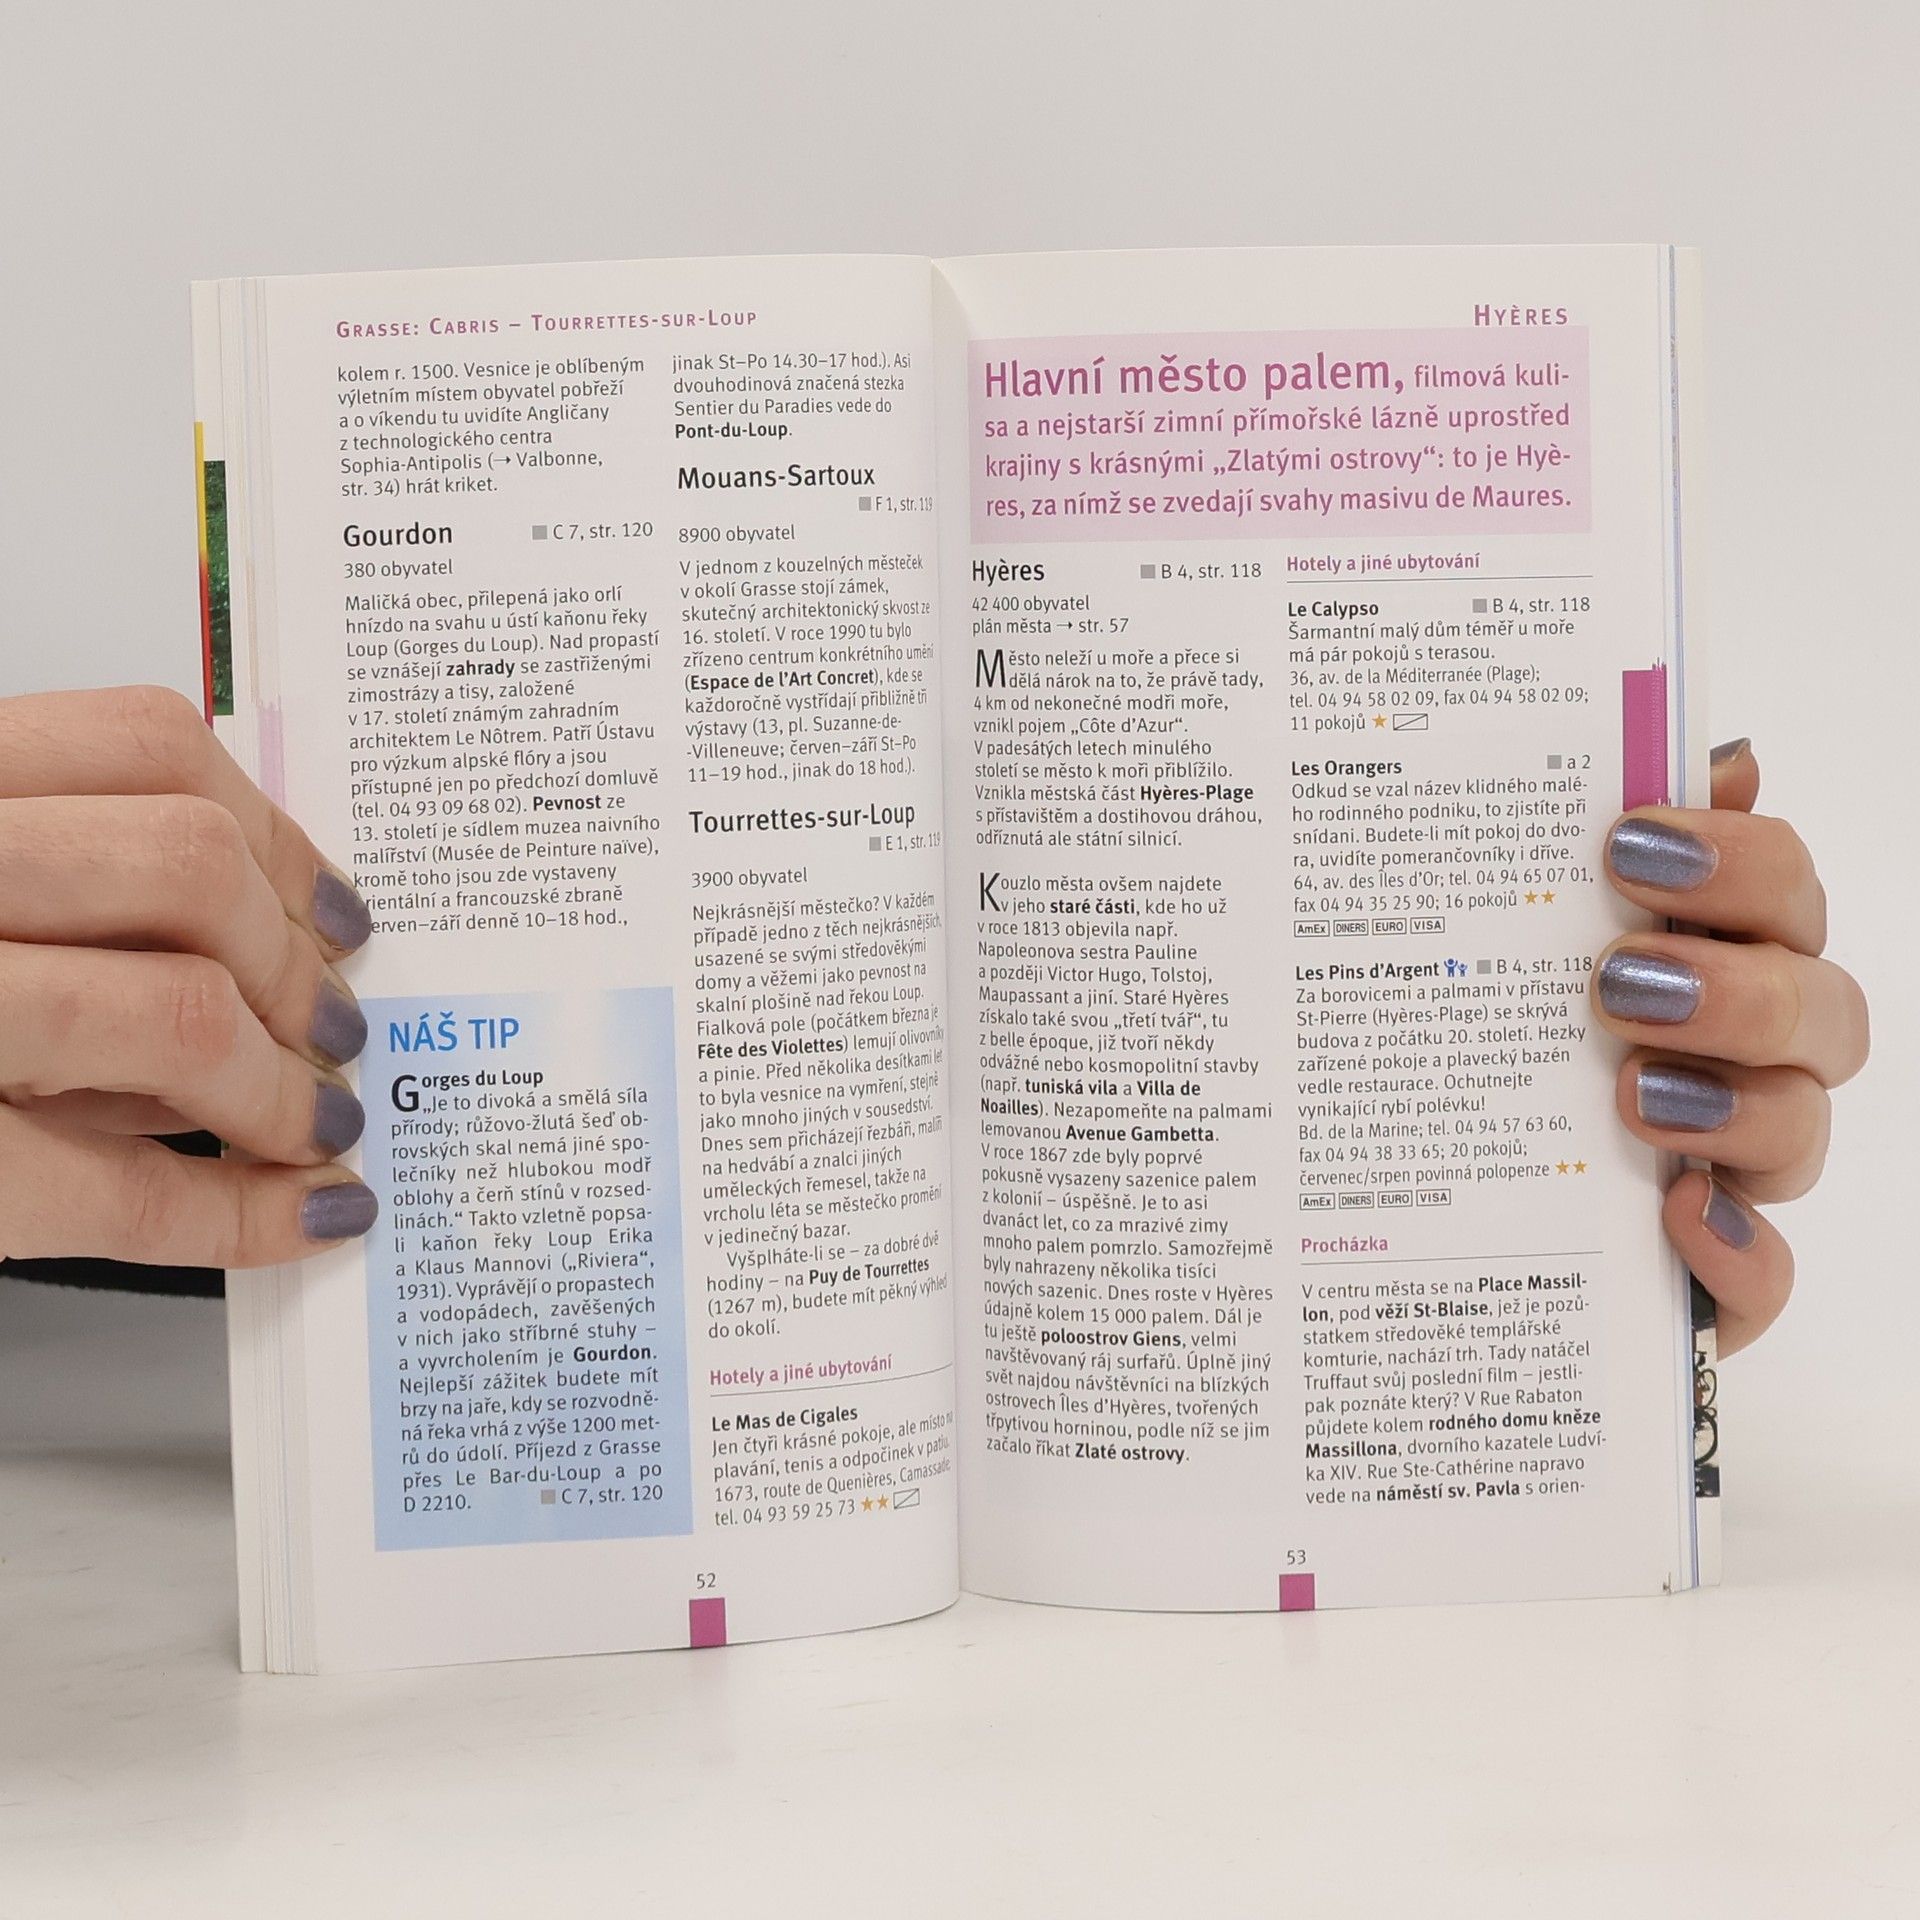 GRASSE: CABRIS – TOURRETTES-SUR-LOUP
kolem r. 1500. Vesnice je oblíbeným
výletním místem obyvatel pobřeží
a o víkendu tu uvidíte Angličany
z technologického centra
Sophia-Antipolis (→ Valbonne,
str. 34) hrát kriket.
Gourdon
C 7, str. 120
380 obyvatel
Maličká obec, přilepená jako orlí
hnízdo na svahu u ústí kaňonu řeky
Loup (Gorges du Loup). Nad propastí
se vznášejí zahrady se zastřiženými
zimostrázy a tisy, založené
v 17. století známým zahradním
architektem Le Nôtrem. Patří Ústavu
pro výzkum alpské flóry a jsou
přístupné jen po předchozí domluvě
(tel. 04 93 09 68 02). Pevnost ze
13. století je sídlem muzea naivního
malířství (Musée de Peinture naïve),
kromě toho jsou zde vystaveny
rientální a francouzské zbraně
erven–září denně 10–18 hod.,
NÁŠ TIP
Gorges du Loup
„Je to divoká a smělá síla
přírody; růžovo-žlutá šeď ob-
rovských skal nemá jiné spo-
lečníky než hlubokou modř
oblohy a čerň stínů v rozsed-
linách.“ Takto vzletně popsa-
li kaňon řeky Loup Erika
a Klaus Mannovi („Riviera“,
1931). Vyprávějí o propastech
a vodopádech, zavěšených
v nich jako stříbrné stuhy –
a vyvrcholením je Gourdon.
Nejlepší zážitek budete mít
brzy na jaře, kdy se rozvodně-
ná řeka vrhá z výše 1200 met-
rů do údolí. Příjezd z Grasse
přes Le Bar-du-Loup a po
D 2210.
C 7, str. 120
jinak St–Po 14.30–17 hod.). Asi
dvouhodinová značená stezka
Sentier du Paradies vede do
Pont-du-Loup.
Mouans-Sartoux
F 1, str. 119
8900 obyvatel
V jednom z kouzelných městeček
v okolí Grasse stojí zámek,
skutečný architektonický skvost ze
16. století. V roce 1990 tu bylo
zřízeno centrum konkrétního umění
(Espace de l’Art Concret), kde se
každoročně vystřídají přibližně tři
výstavy (13, pl. Suzanne-de-
-Villeneuve; červen–září St–Po
11–19 hod., jinak do 18 hod.).
Tourrettes-sur-Loup
E 1, str. 119
3900 obyvatel
Nejkrásnější městečko? V každém
případě jedno z těch nejkrásnějších,
usazené se svými středověkými
domy a věžemi jako pevnost na
skalní plošině nad řekou Loup.
Fialková pole (počátkem března je
Fête des Violettes) lemují olivovníky
a pinie. Před několika desítkami let
to byla vesnice na vymření, stejně
jako mnoho jiných v sousedství.
Dnes sem přicházejí řezbáři, malíři
na hedvábí a znalci jiných
uměleckých řemesel, takže na
vrcholu léta se městečko promění
v jedinečný bazar.
Vyšplháte-li se – za dobré dvě
hodiny – na Puy de Tourrettes
(1267 m), budete mít pěkný výhled
do okolí.
Hotely a jiné ubytování
Le Mas de Cigales
Jen čtyři krásné pokoje, ale místo na
plavání, tenis a odpočinek v patiu.
1673, route de Quenières, Camassade,
tel. 04 93 59 25 73 ★★
52
HYÈRES
Hlavní město palem, filmová kuli-
sa a nejstarší zimní přímořské lázně uprostřed
krajiny s krásnými „Zlatými ostrovy“: to je Hyè-
res, za nímž se zvedají svahy masivu de Maures.
Hyères
B 4, str. 118
42 400 obyvatel
plán města → str. 57
Město neleží u moře a přece si
dělá nárok na to, že právě tady,
4 km od nekonečné modři moře,
vznikl pojem „Côte d’Azur“.
V padesátých letech minulého
století se město k moři přiblížilo.
Vznikla městská část Hyères-Plage
s přístavištěm a dostihovou dráhou,
odříznutá ale státní silnicí.
Kouzlo města ovšem najdete
v jeho staré části, kde ho už
v roce 1813 objevila např.
Napoleonova sestra Pauline
a později Victor Hugo, Tolstoj,
Maupassant a jiní. Staré Hyères
získalo také svou „třetí tvář“, tu
z belle époque, již tvoří někdy
odvážné nebo kosmopolitní stavby
(např. tuniská vila a Villa de
Noailles). Nezapomeňte na palmami
lemovanou Avenue Gambetta.
V roce 1867 zde byly poprvé
pokusně vysazeny sazenice palem
z kolonií – úspěšně. Je to asi
dvanáct let, co za mrazivé zimy
mnoho palem pomrzlo. Samozřejmě
byly nahrazeny několika tisíci
nových sazenic. Dnes roste v Hyères
údajně kolem 15 000 palem. Dál je
tu ještě poloostrov Giens, velmi
navštěvovaný ráj surfařů. Úplně jiný
svět najdou návštěvníci na blízkých
ostrovech Îles d’Hyères, tvořených
třpytivou horninou, podle níž se jim
začalo říkat Zlaté ostrovy.
Hotely a jiné ubytování
Le Calypso
B 4, str. 118
Šarmantní malý dům téměř u moře
má pár pokojů s terasou.
36, av. de la Méditerranée (Plage);
tel. 04 94 58 02 09, fax 04 94 58 02 09;
11 pokojů ★
Les Orangers
a 2
Odkud se vzal název klidného malé-
ho rodinného podniku, to zjistíte při
snídani. Budete-li mít pokoj do dvo-
ra, uvidíte pomerančovníky i dříve.
64, av. des Îles d’Or; tel. 04 94 65 07 01,
fax 04 94 35 25 90; 16 pokojů ★★
AmEx DINERS EURO VISA
Les Pins d’Argent
B 4, str. 118
Za borovicemi a palmami v přístavu
St-Pierre (Hyères-Plage) se skrývá
budova z počátku 20. století. Hezky
zařízené pokoje a plavecký bazén
vedle restaurace. Ochutnejte
vynikající rybí polévku!
Bd. de la Marine; tel. 04 94 57 63 60,
fax 04 94 38 33 65; 20 pokojů;
červenec/srpen povinná polopenze ★★
AmEx DINERS EURO VISA
Procházka
V centru města se na Place Massil-
lon, pod věží St-Blaise, jež je pozů-
statkem středověké templářské
komturie, nachází trh. Tady natáčel
Truffaut svůj poslední film – jestli-
pak poznáte který? V Rue Rabaton
půjdete kolem rodného domu kněze
Massillona, dvorního kazatele Ludví-
ka XIV. Rue Ste-Cathérine napravo
vede na náměstí sv. Pavla s orien-
53